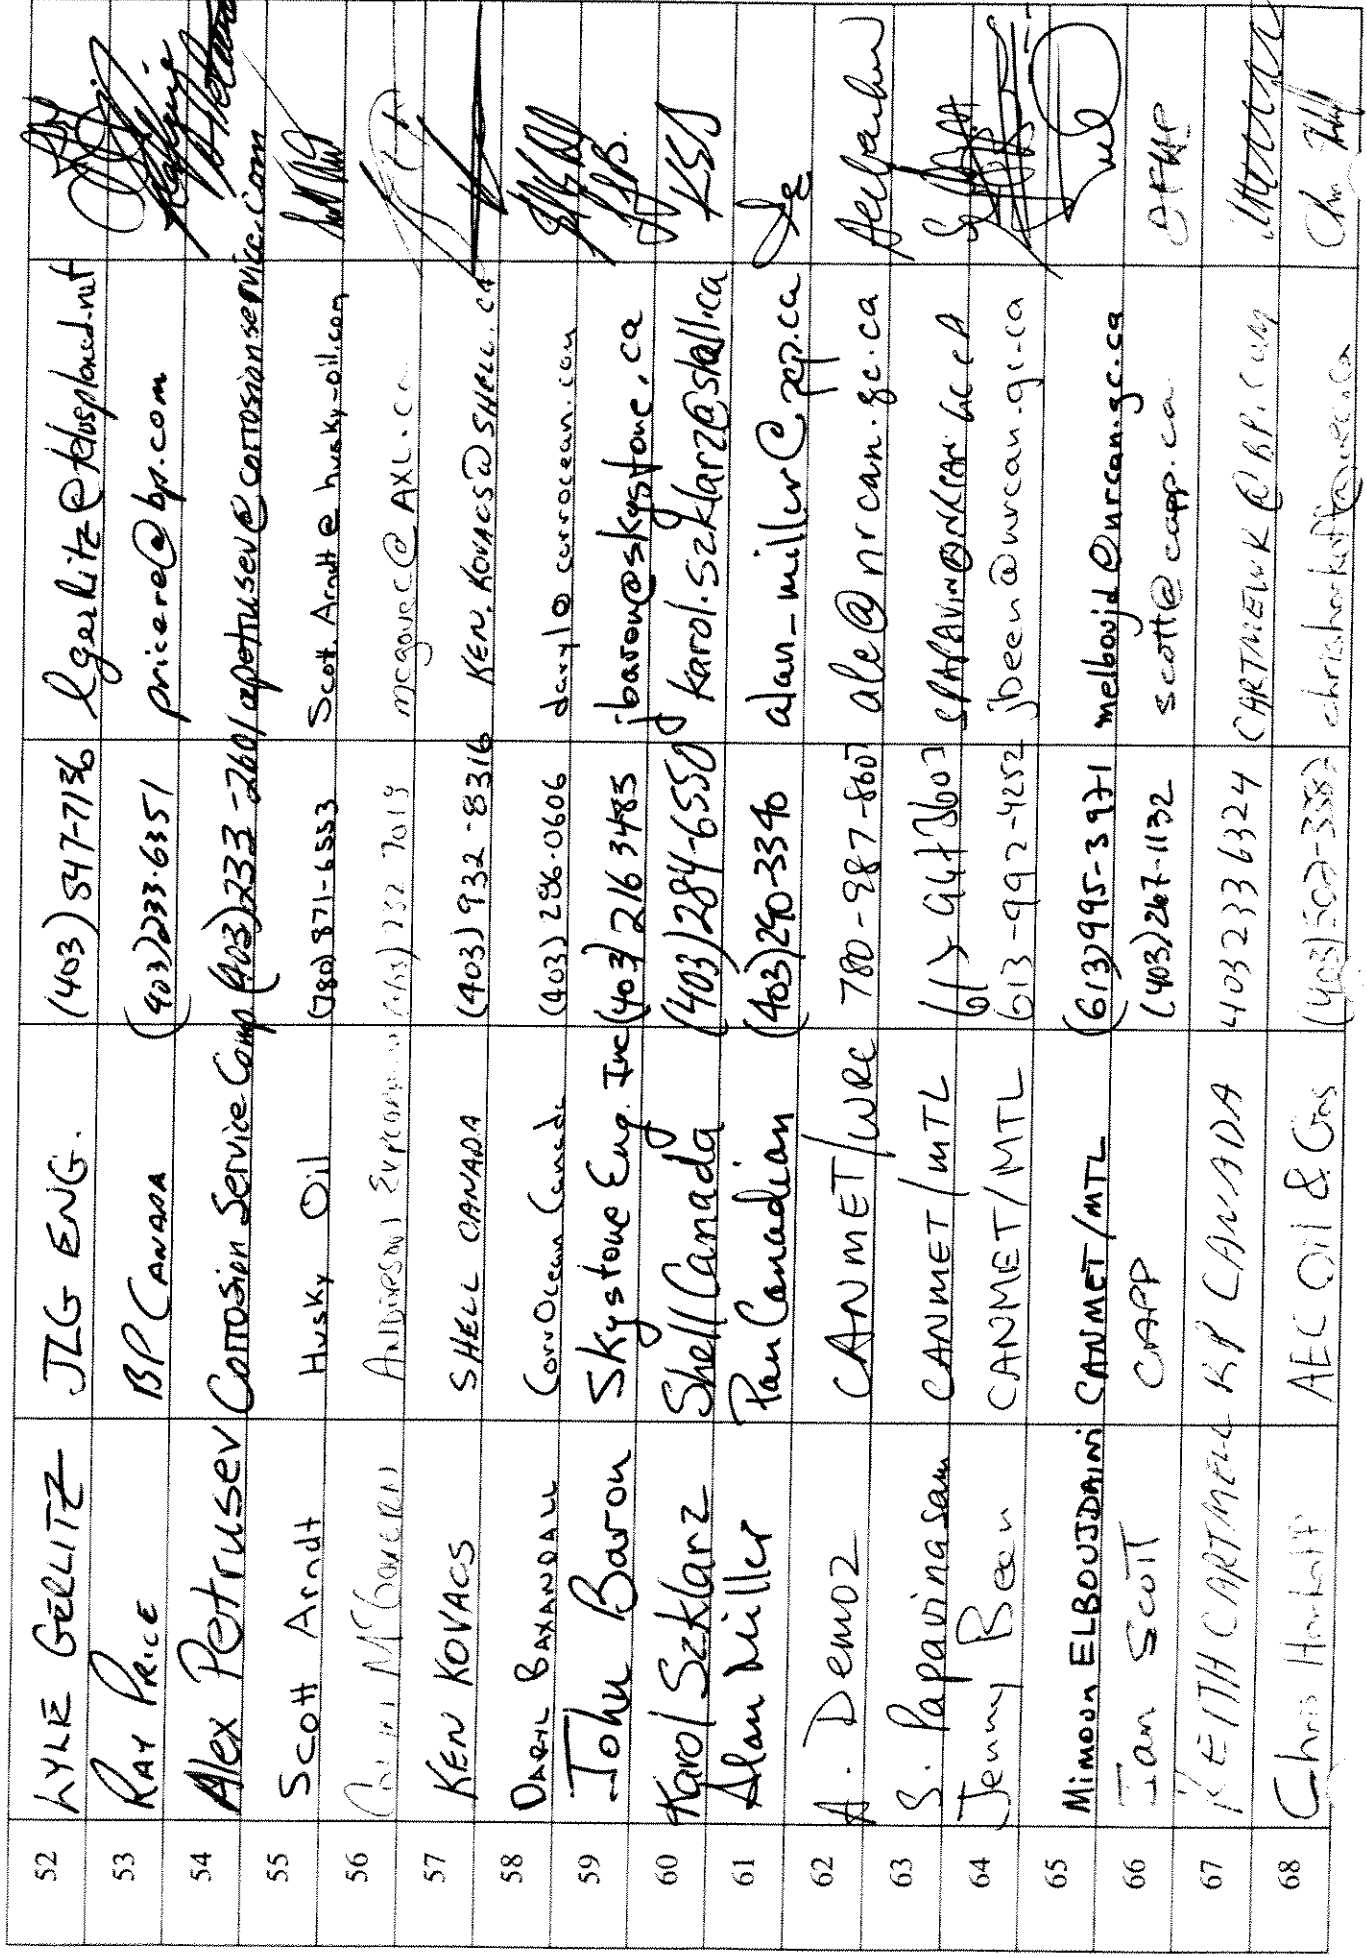 52 LYLE GERLITZ JLG ENG. (403) 547-7136 lgerlitz@telusplanet.net
53 RAY PRICE BP CANADA (403)233-6351 pricere@bp.com
54 Alex Petrusev Corrosion Service Comp (403)233-2601 apetrusev@corrosionservice.com
55 Scott Arndt Husky Oil (780) 871-6553 Scott.Arndt@husky-oil.com
56 McGovern 232 7019 mcgovec@AXL.ca
57 KEN KOVACS SHELL CANADA (403) 932-8316 KEN.KOVACS@SHELL.CA
58 DARYL BAXANDALL CorrOcean Canada (403) 296-0606 daryl@corrocean.com
59 John Baron Skystone Eng. Inc (403) 216 3485 jbaron@skystone.ca
60 Karol Szklarz Shell Canada (403) 284-6550 karol.szklarz@shell.ca KSS
61 Alan Miller Pan Canadian (403)290-3340 alan_miller@pcp.ca
62 A. Demoz CANMET/WRC 780-987-8607 ale@nrcan.gc.ca
63 S. Papavinasam CANMET/MTL 613-947 3603 SPAPAVIN@NRCAN.GC.CA
64 Jenny Been CANMET/MTL 613-992-4252 jbeen@nrcan.gc.ca
65 Mimoun ELBOUJDAINI CANMET/MTL (613)995-3971 melboujd@nrcan.gc.ca
66 Ian SCOTT CAPP (403)267-1132 scott@capp.ca
67 KEITH CARTMELL BP CANADA 403 233 6324 CARTMEWK@BP.COM
68 Chris AEC Oil & Gas